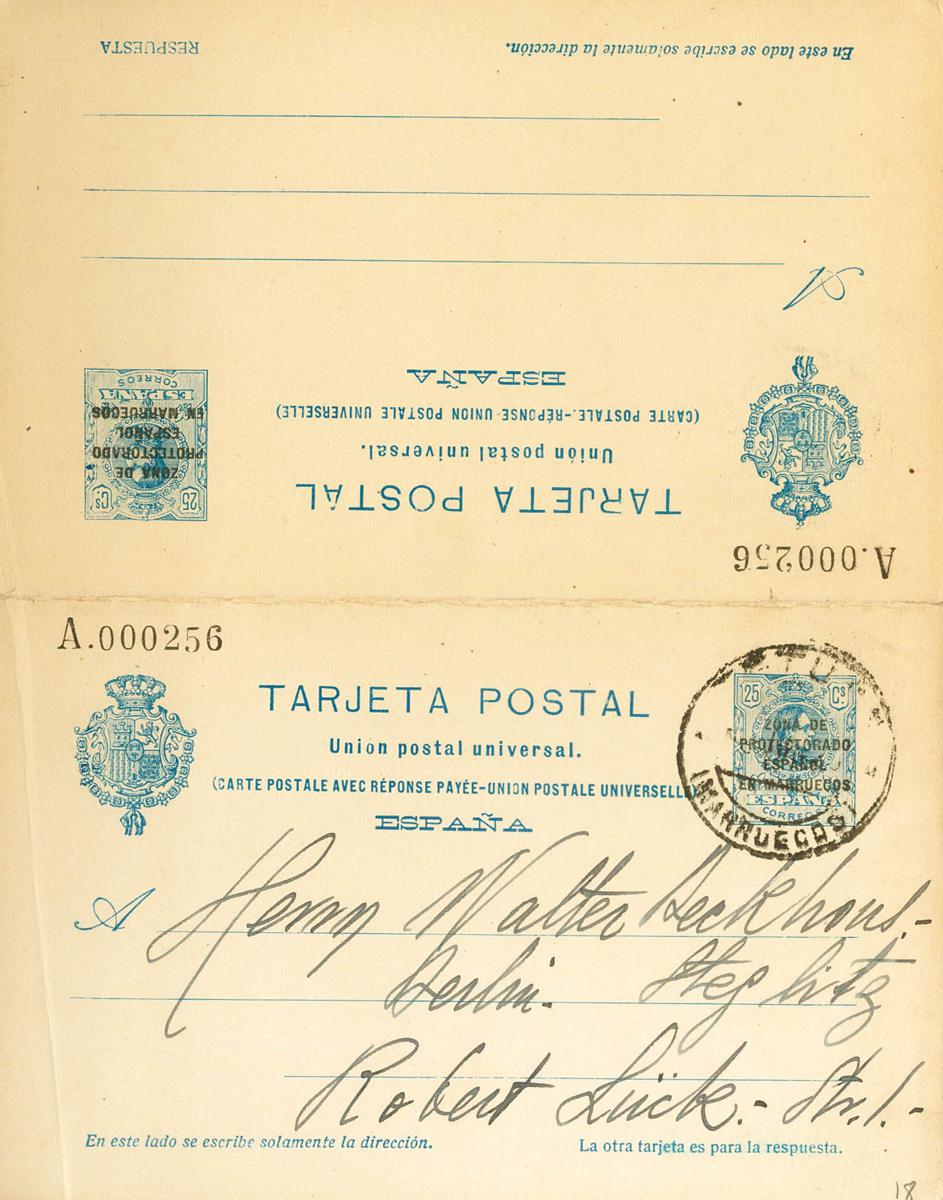 RESPUESTA
En este lado se escribe solamente la dirección.
A
ESPAÑA
(CARTE POSTALE.-RÉPONSE-UNION POSTALE UNIVERSELLE)
Unión postal universal.
TARJETA POSTAL
CORREOS
ESPAÑA
ZONA DE
PROTECTORADO
ESPAÑOL
EN MARRUECOS
25 Cs
A.000256
A.000256
TARJETA POSTAL
Union postal universal.
(CARTE POSTALE AVEC RÉPONSE PAYÉE-UNION POSTALE UNIVERSELLE)
ESPAÑA
25 Cs
ZONA DE
PROTECTORADO
ESPAÑOL
EN MARRUECOS
ESPAÑA
CORREOS
(MARRUECOS)
A Herrn Walter Beckhous.-
Berlin.- Steglitz
Robert Lück.- Str. 1.-
En este lado se escribe solamente la dirección.
La otra tarjeta es para la respuesta.
18